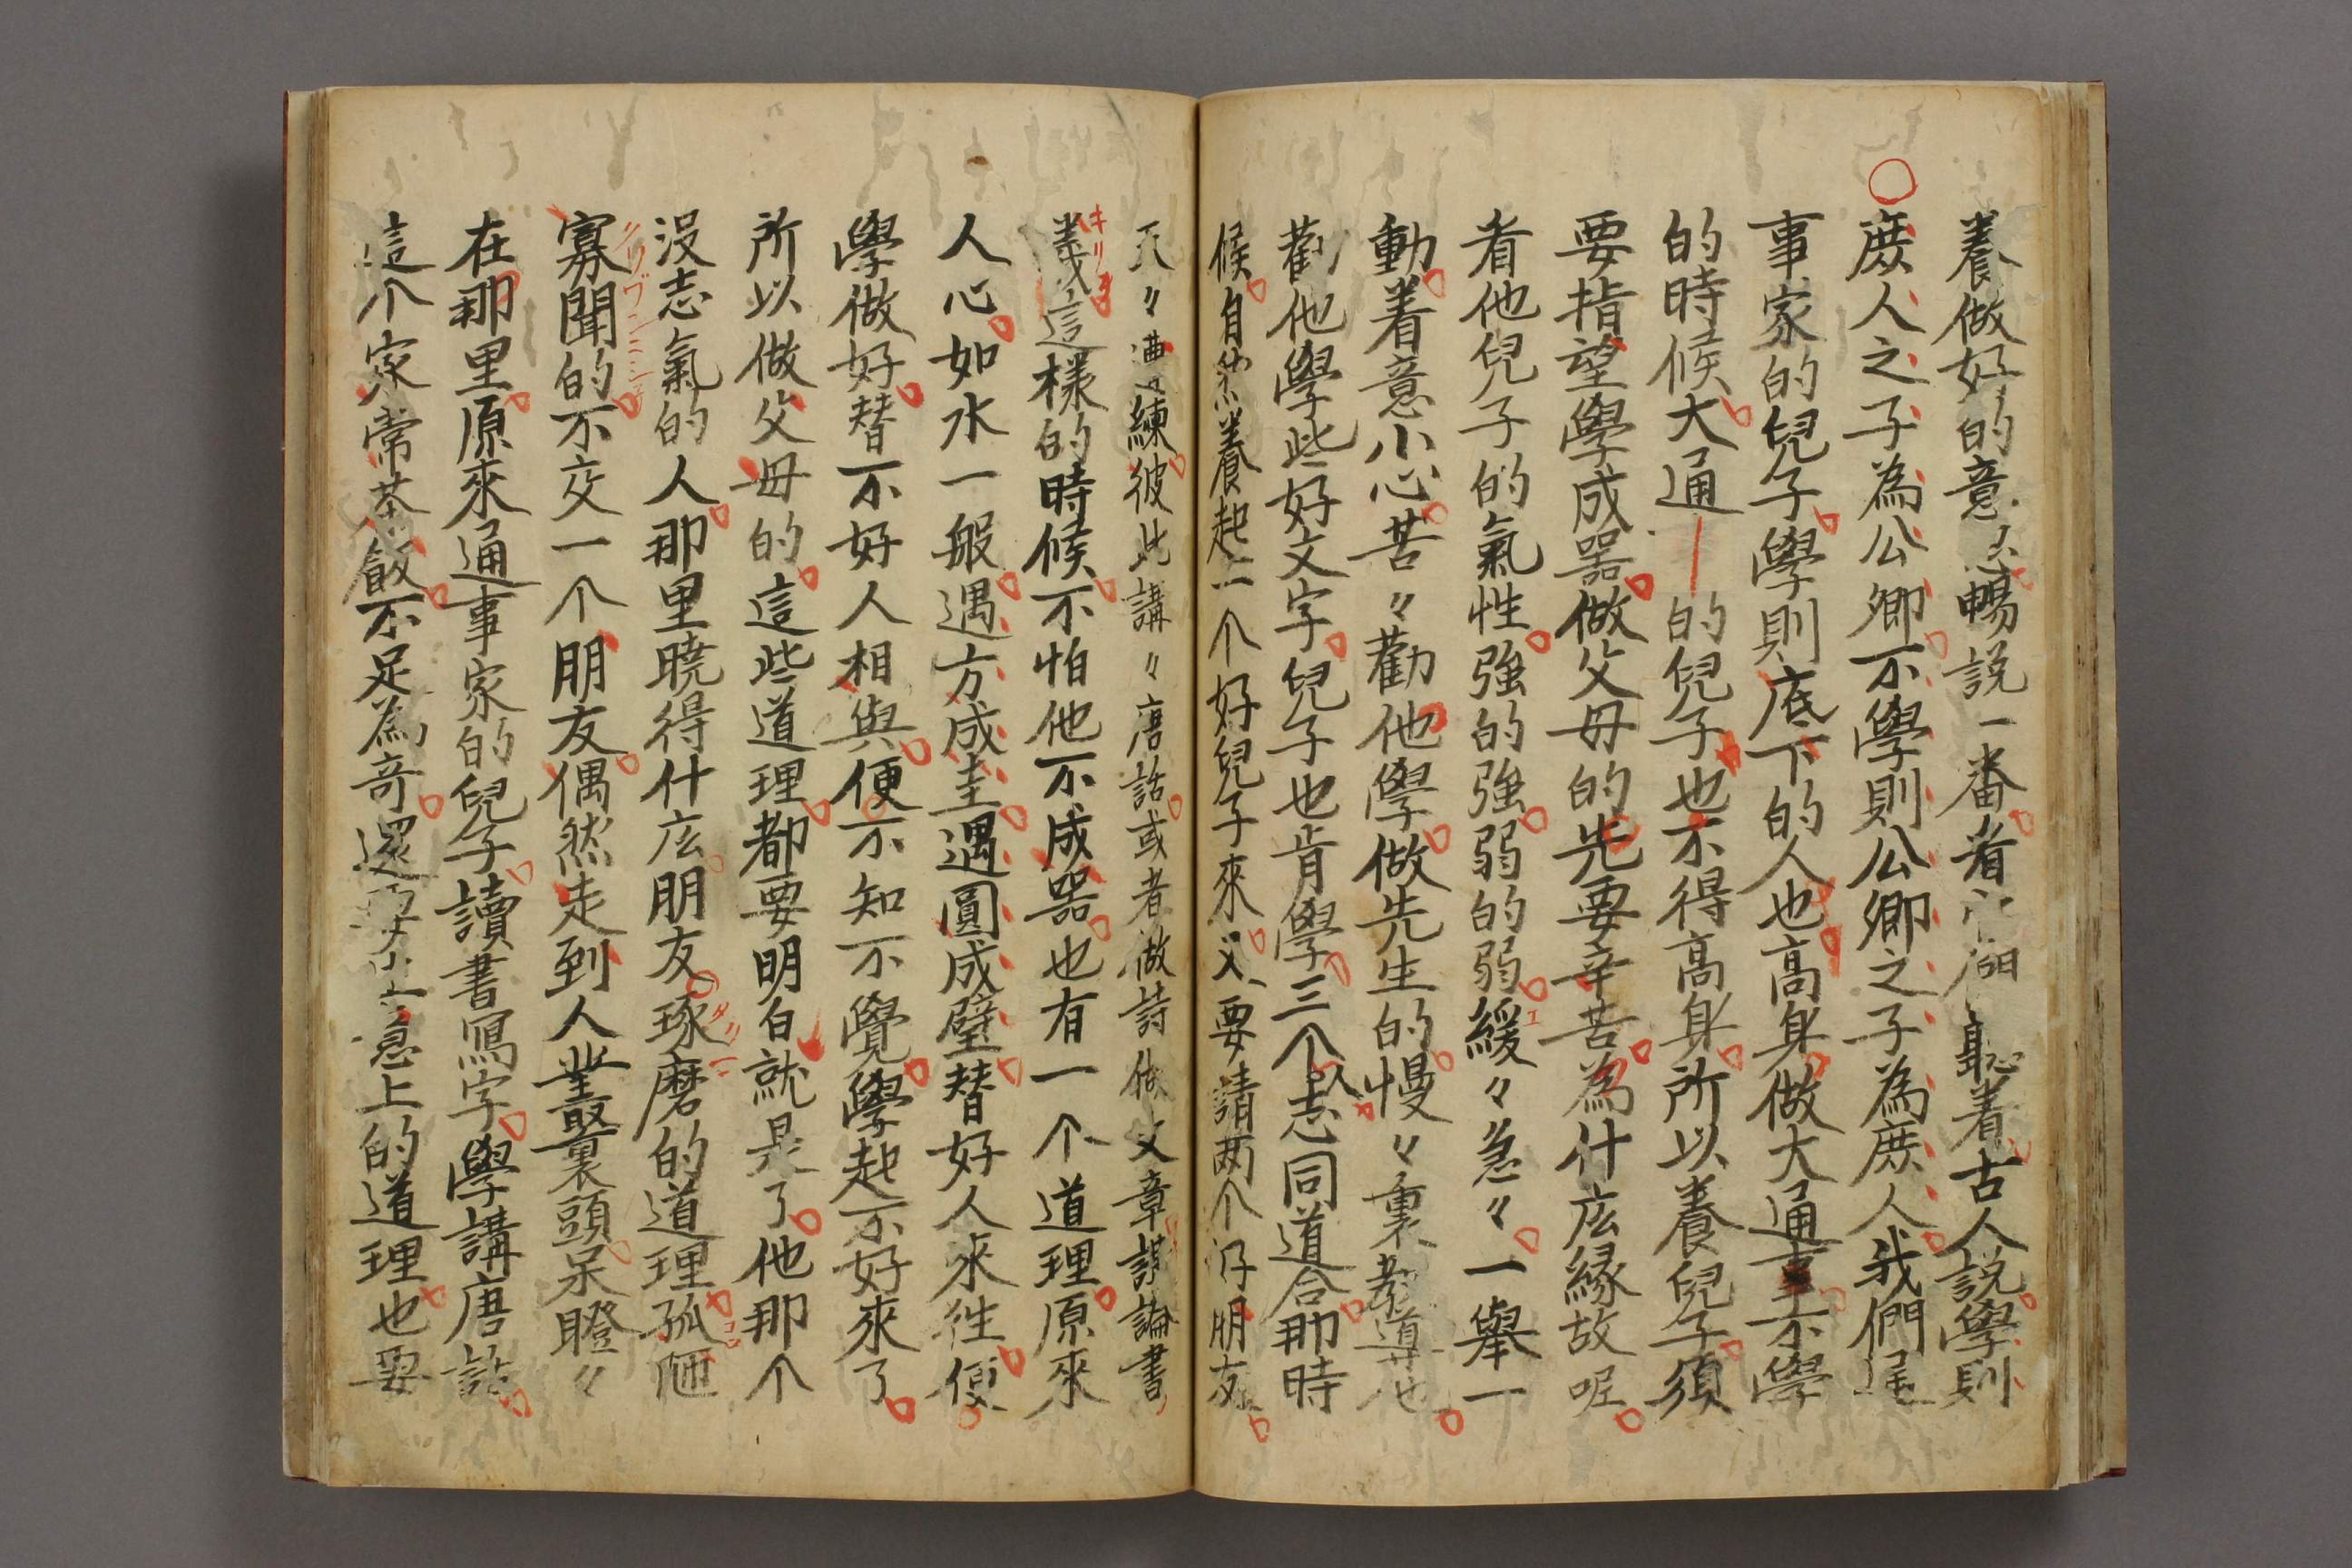 養做好的意思暢說一番看 恥着古人說學則
庶人之子為公卿不學則公卿之子為庶人我們通
事家的兒子學則底下的人也高身做大通事不學
的時候大通｜的兒子也不得高身所以養兒子須
要指望學成器做父母的先要辛苦為什庅緣故呢
看他兒子的氣性強的強弱的弱緩〻急〻一舉一
動着意小心苦〻勸他學做先生的慢〻裏教導他
勸他學些好文字兒子也肯學三个人志同道合那時
候自然養起一个好兒子來又要請两个好朋友
天〻操練彼此講〻唐話或者做詩做文章謀論書
義這樣的時候不怕他不成器也有一个道理原來
人心如水一般遇方成圭遇圓成璧替好人來往便
學做好替不好人相與便不知不覺學起不好來了
所以做父母的這些道理都要明白就是了他那个
沒志氣的人那里曉得什庅朋友琢磨的道理孤陋
キリヨ
タリ
コロ
寡聞的不交一个朋友偶然走到人叢裏頭呆瞪〻
在那里原來通事家的兒子讀書寫字學講唐話
這个家常茶飯不足為奇還要 意上的道理也要